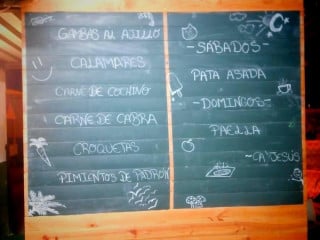 GAMBAS AL AJILLO
CALAMARES
CARNE DE COCHINO
CARNE DE CABRA
CROQUETAS
PIMIENTOS DE PADRON
-SABADOS-
PATA ASADA
-DOMINGOS-
PAELLA
-CA'JESÚS